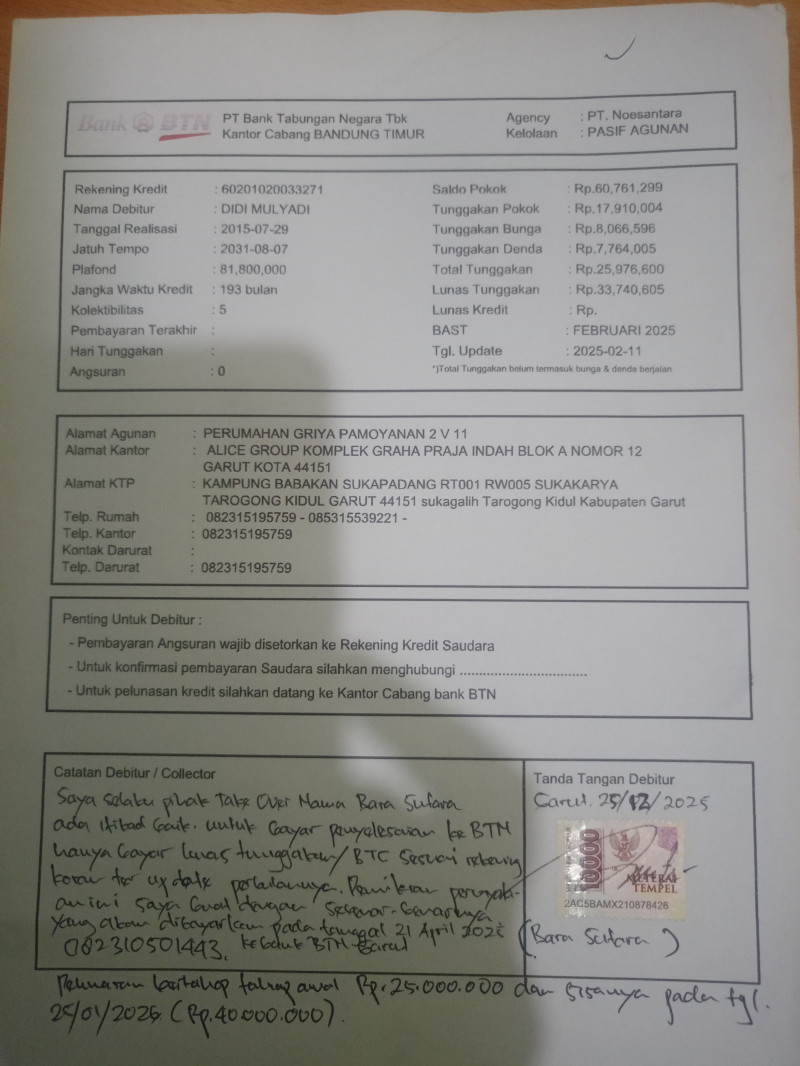 Bank BTN
PT Bank Tabungan Negara Tbk
Kantor Cabang BANDUNG TIMUR
Agency : PT. Noesantara
Kelolaan : PASIF AGUNAN
Rekening Kredit : 60201020033271
Nama Debitur : DIDI MULYADI
Tanggal Realisasi : 2015-07-29
Jatuh Tempo : 2031-08-07
Plafond : 81,800,000
Jangka Waktu Kredit : 193 bulan
Kolektibilitas : 5
Pembayaran Terakhir :
Hari Tunggakan :
Angsuran : 0
Saldo Pokok : Rp.60,761,299
Tunggakan Pokok : Rp.17,910,004
Tunggakan Bunga : Rp.8,066,596
Tunggakan Denda : Rp.7,764,005
Total Tunggakan : Rp.25,976,600
Lunas Tunggakan : Rp.33,740,605
Lunas Kredit : Rp.
BAST : FEBRUARI 2025
Tgl. Update : 2025-02-11
*)Total Tunggakan belum termasuk bunga & denda berjalan
Alamat Agunan : PERUMAHAN GRIYA PAMOYANAN 2 V 11
Alamat Kantor : ALICE GROUP KOMPLEK GRAHA PRAJA INDAH BLOK A NOMOR 12
GARUT KOTA 44151
Alamat KTP : KAMPUNG BABAKAN SUKAPADANG RT001 RW005 SUKAKARYA
TAROGONG KIDUL GARUT 44151 sukagalih Tarogong Kidul Kabupaten Garut
Telp. Rumah : 082315195759 - 085315539221 -
Telp. Kantor : 082315195759
Kontak Darurat :
Telp. Darurat : 082315195759
Penting Untuk Debitur :
- Pembayaran Angsuran wajib disetorkan ke Rekening Kredit Saudara
- Untuk konfirmasi pembayaran Saudara silahkan menghubungi ................................
- Untuk pelunasan kredit silahkan datang ke Kantor Cabang bank BTN
Catatan Debitur / Collector
Saya selaku pihak Take Over Nama Bara Sutara
ada itikad baik untuk bayar penyelesaian ke BTN
hanya bayar lunas tunggakan/BTC sesuai rekening
koran ter update perbulannya. Demikian pernyata-
an ini saya buat dengan sebenar-benarnya
yang akan dibayarkan pada tanggal 21 April
082310501443, ke BTN Garut
Tanda Tangan Debitur
Garut. 25/12/2025
10000
METERAI
TEMPEL
2AC5BAMX210878426
(Bara Sutara)
Pelunasan bertahap tahap awal Rp.25.000.000 dan sisanya pada tgl.
25/01/2026 (Rp.40.000.000).